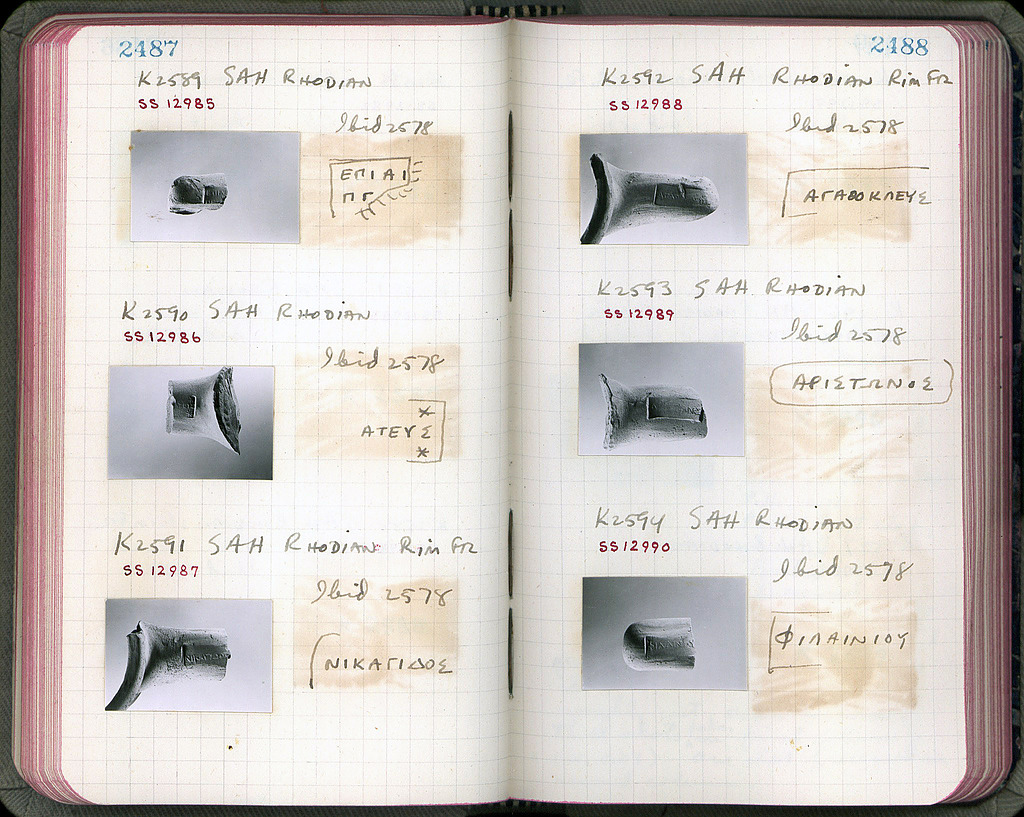 2487
K2589 SAH RHODIAN
SS 12985
Ibid 2578
ΕΠΙΑΙ
ΠΓ
K2590 SAH RHODIAN
SS 12986
Ibid 2578
*
ΑΤΕΥΣ
*
K2591 SAH RHODIAN Rim FR
SS 12987
Ibid 2578
ΝΙΚΑΓΙΔΟΣ
2488
K2592 SAH RHODIAN Rim FR
SS 12988
Ibid 2578
ΑΓΑΘΟΚΛΕΥΣ
K2593 SAH RHODIAN
SS 12989
Ibid 2578
ΑΡΙΣΤΩΝΟΣ
K2594 SAH RHODIAN
SS 12990
Ibid 2578
ΦΙΛΑΙΝΙΟΥ